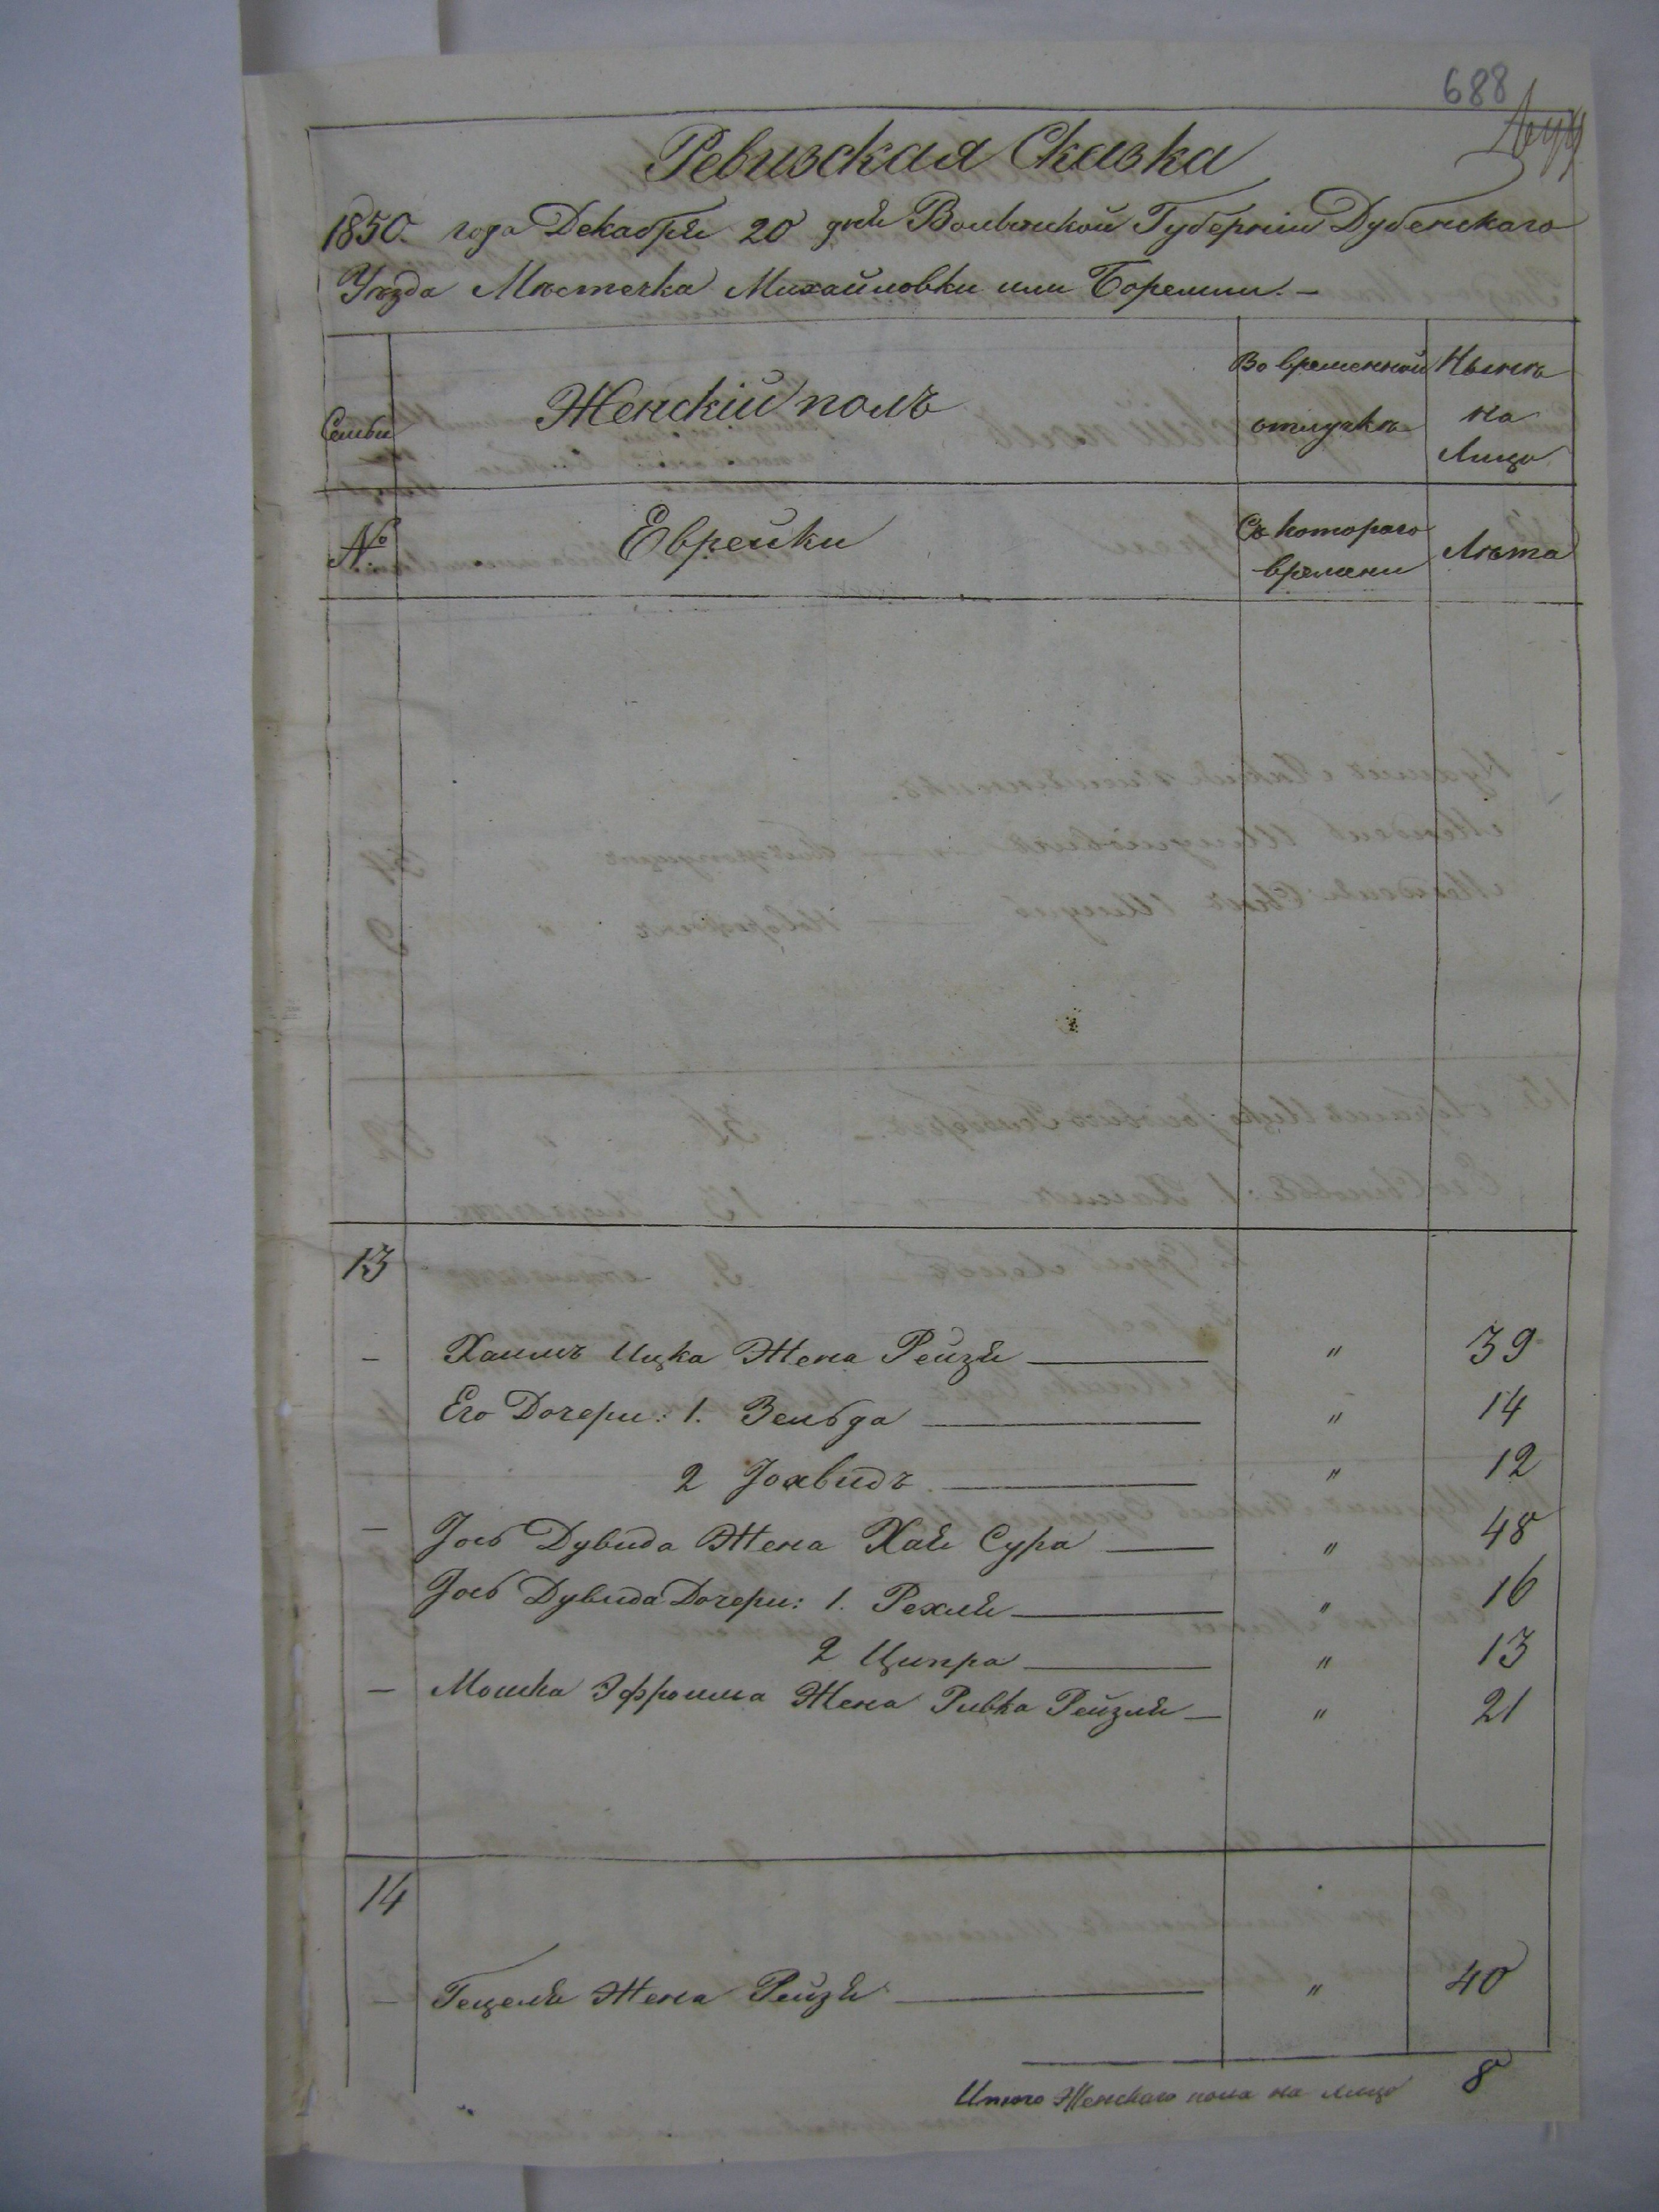 688
Ревизская Сказка
1850. года Декабря 20 дня Волынской Губерніи Дубенскаго
Уѣзда Мѣстечка Михайловки или Боремли. —
Семьи
Женскій полъ
Во временной отлучкѣ
Нынѣ на Лицо
№
Еврейки
Съ котораго времени
Лѣта
13
— Хаимъ Ицка Жена Рейзя — " 39
Его Дочери: 1. Зельда — " 14
2 Іохвидъ — " 12
— Іось Дувида Жена Хая Сура — " 48
Іось Дувида Дочери: 1. Рехля — " 16
2 Ципра — " 13
— Мошка Эфроима Жена Ривка Рейзля — " 21
14
— Гецеля Жена Рейзя — " 40
Итого Женскаго пола на лицо 8